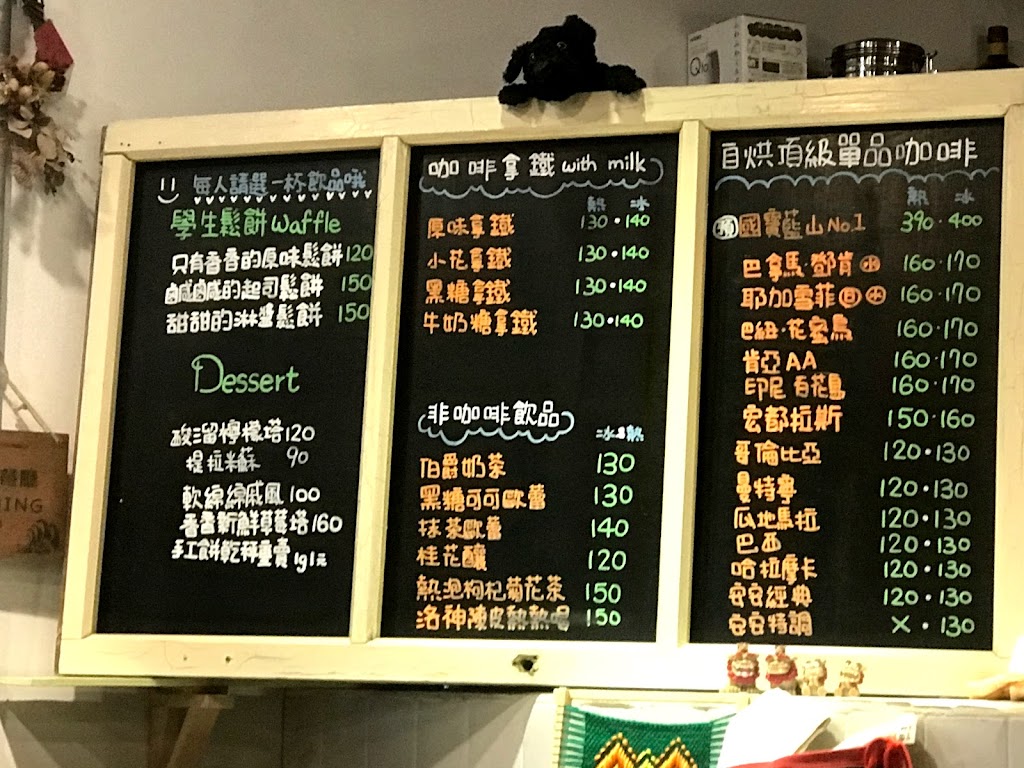 每人請選一杯飲品哦
學生鬆餅 Waffle
只有香香的原味鬆餅 120
鹹鹹的起司鬆餅 150
甜甜的淋醬鬆餅 150
Dessert
酸溜檸檬塔 120
提拉米蘇 90
軟綿綿戚風 100
香香新鮮草莓塔 160
手工餅乾秤重賣 1g1元
咖啡拿鐵 with milk
熱 冰
原味拿鐵 130・140
小花拿鐵 130・140
黑糖拿鐵 130・140
牛奶糖拿鐵 130・140
非咖啡飲品
冰&熱
伯爵奶茶 130
黑糖可可歐蕾 130
抹茶歐蕾 140
桂花釀 120
熱泡枸杞菊花茶 150
洛神陳皮熱熱喝 150
自烘頂級單品咖啡
熱 冰
國寶藍山 No.1 390・400
巴拿馬・鄧肯 水 160・170
耶加雪菲 日 水 160・170
巴紐・花蜜鳥 160・170
肯亞 AA 160・170
印尼 百花鳥 160・170
宏都拉斯 150・160
哥倫比亞 120・130
曼特寧 120・130
瓜地馬拉 120・130
巴西 120・130
哈拉摩卡 120・130
安安經典 120・130
安安特調 ×・130
Q10
餐廳
ING